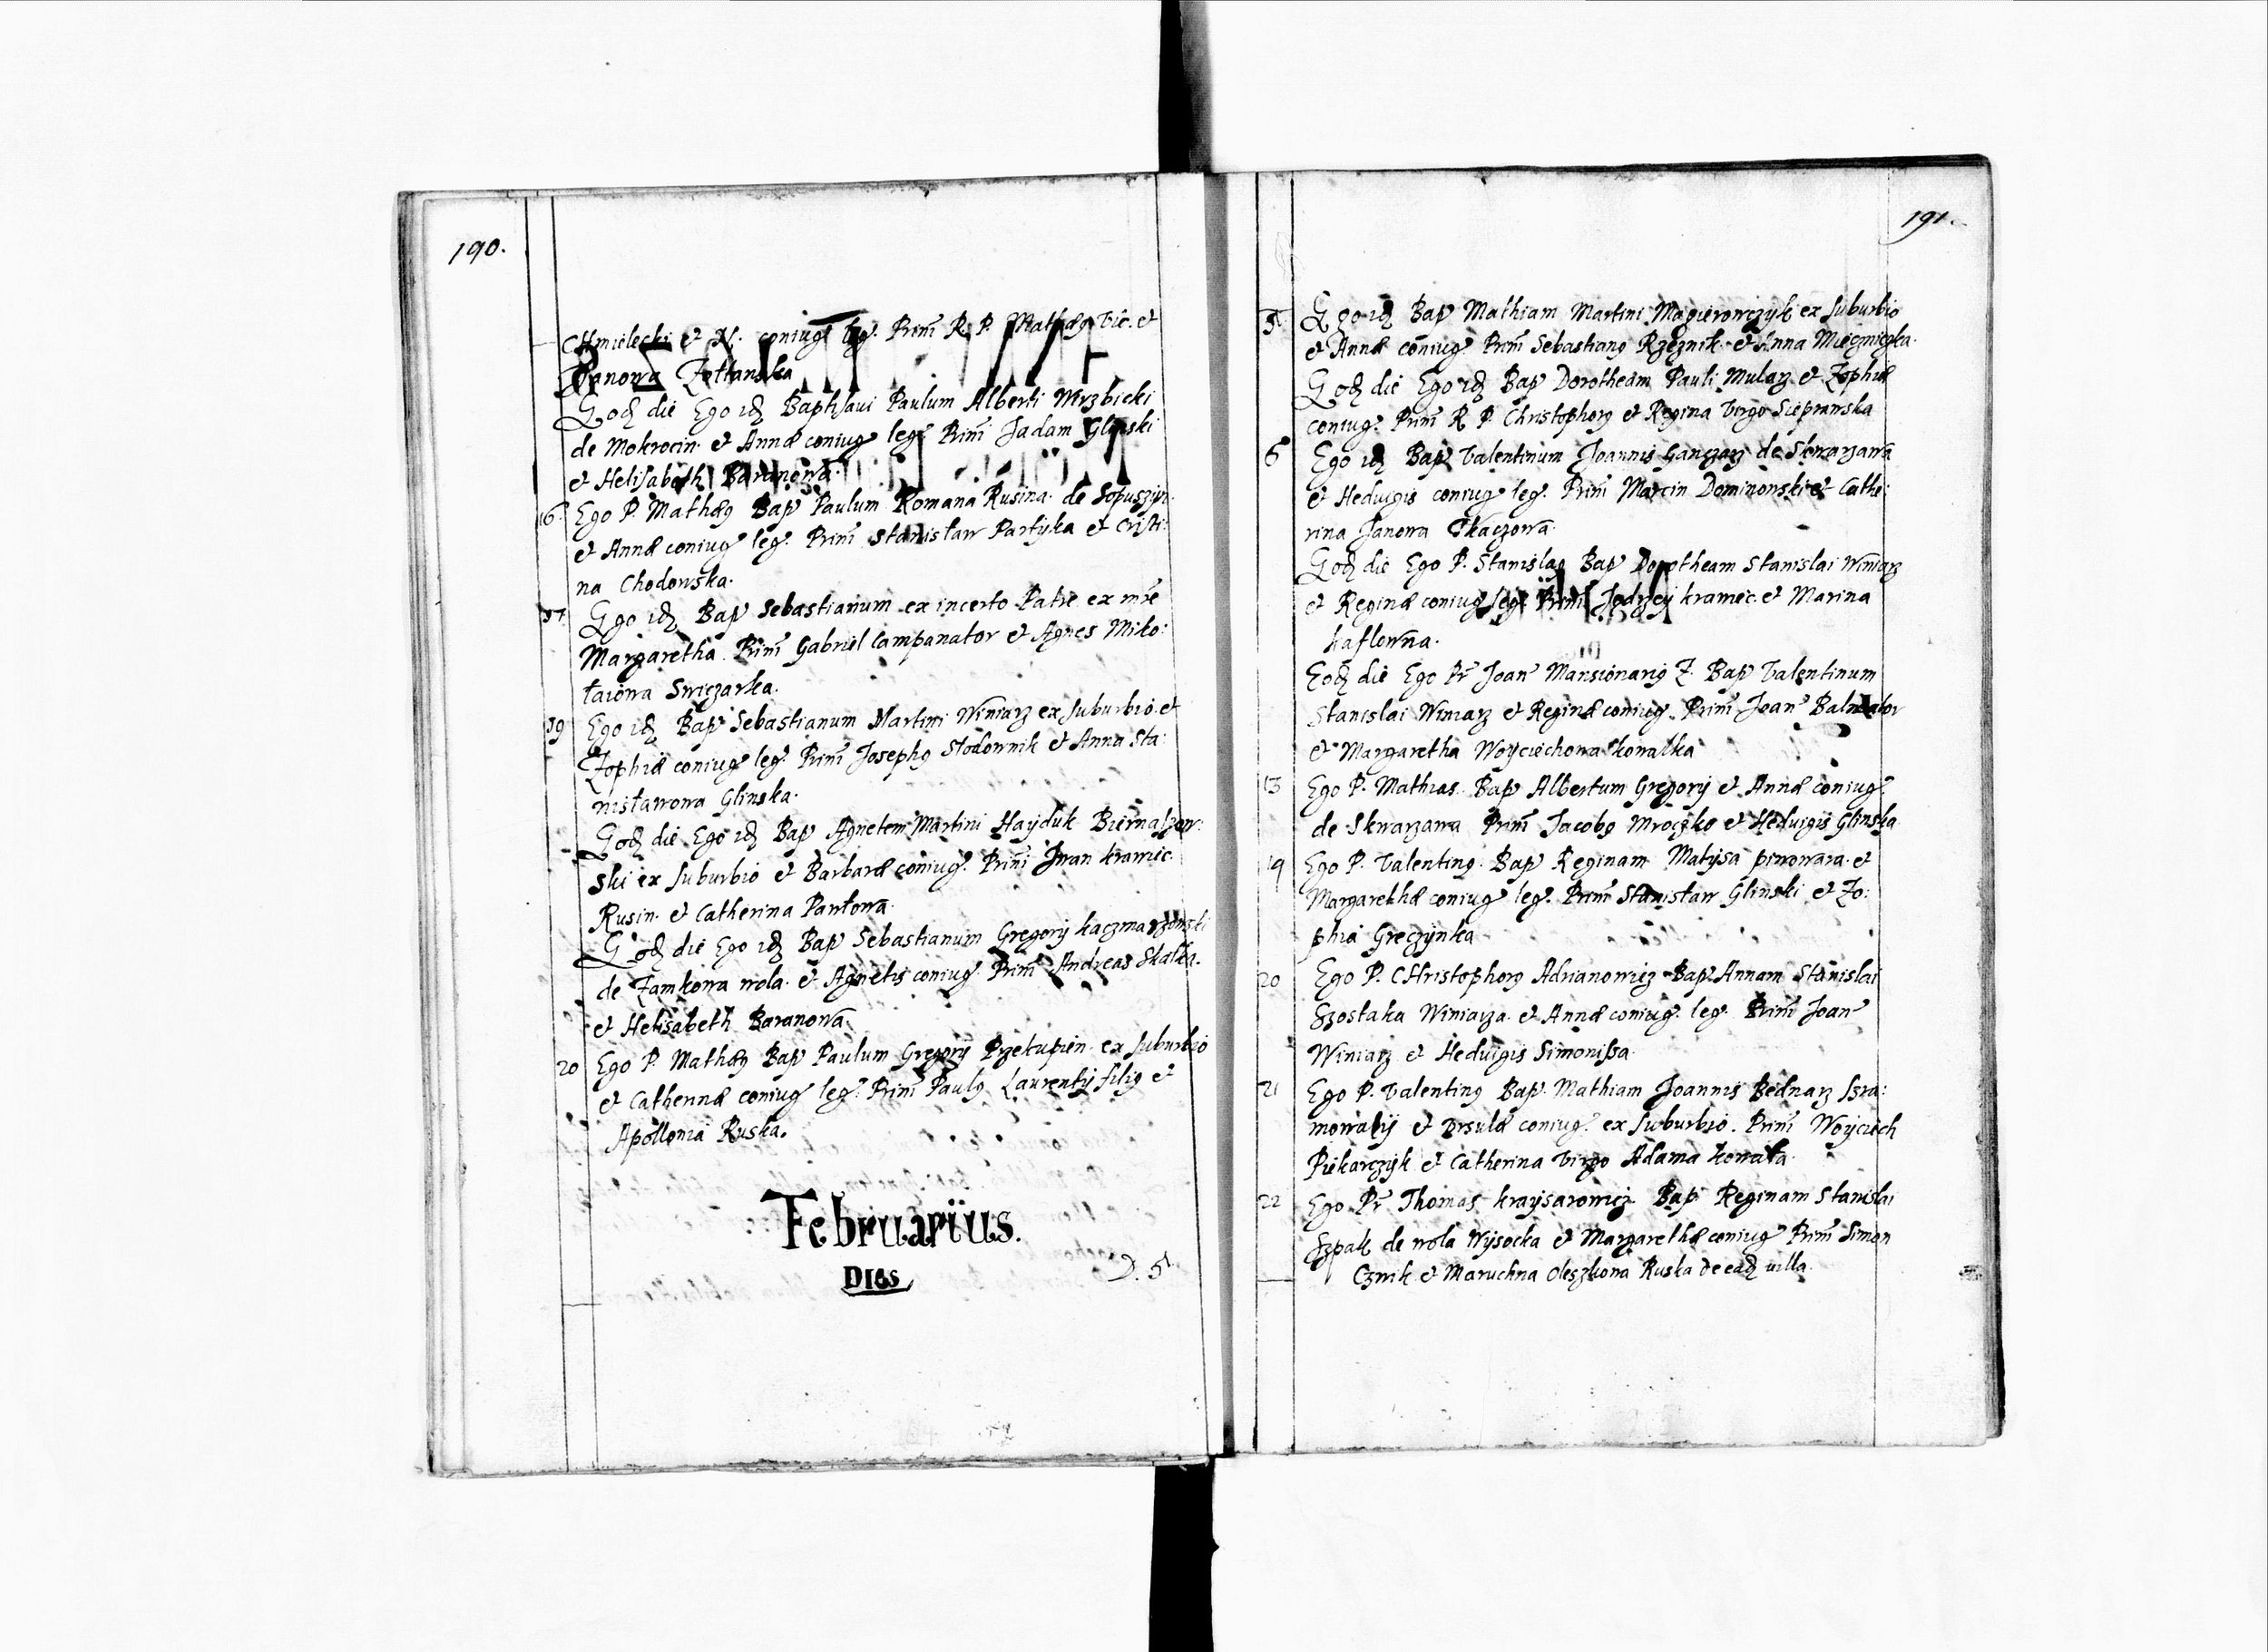 190.
CHmielecki et N. coniug leg. Prim R P. Mathæg Vic. et
Panowa Zołtanska
Eodz die Ego idz Baptisaui Paulum Alberti Wirzbicki
de Mokrocin et Annæ coniug leg. Prim Jadam Glinski
et Helisabeth Baranowa.
16. Ego P. Mathæg Bap Paulum Romana Rusina de Sopuszyn
et Annæ coniug leg. Prim Stanisław Partÿka et Cristi:
na Chodowska.
17 Ego idz Bap Sebastianum ex incerto Patre ex mre
Margaretha Prim Gabriel Campanator et Agnes Miko:
łaiowa Swiczarka.
19 Ego idz Bap Sebastianum Martini Winiarz ex suburbio et
Zophiæ coniug leg. Prim Josephg Stodownik et Anna Sta:
nisławowa Glinska.
Eodz die Ego idz Bap Agnetem Martini Haÿduk Biernaszow:
ski ex suburbio et Barbaræ coniug. Prim Iwan kramic
Rusin et Catherina Pawłowa
Eodz die Ego idz Bap Sebastianum Gregorÿ kaczmarzowski
de Zamkowa wola et Agnetis coniug. Prim Andreas Skałka.
et Helisabeth Baranowa
20 Ego P. Mathæg Bap Paulum Gregorÿ Przekupien ex suburbio
et Catherinæ coniug leg. Prim Paulg Laurentÿ filig et
Apollonia Ruska.
Februarius.
DIES
D. 5
191.
5 Ego idz Bap Mathiam Martini Magierowczÿk ex suburbio
et Annæ coniug Prim Sebastiang Rzeznik et Anna Mieczniczka.
Eodz die Ego idz Bap Dorotheam Pauli Mularz et Zophiæ
coniug. Prim R P. Christophorg et Regina Virgo Siepranska
6 Ego idz Bap Valentinum Joannis Ganczarz de Skwarzawa
et Heduigis coniug leg. Prim Marcin Dominowski et Cathe:
rina Janowa Tkaczowa.
Eodz die Ego P. Stanislag Bap Dorotheam Stanislai Winiarz
et Reginæ coniug leg. Prim Jedrzeÿ kramic et Marina
kaflowna.
Eodz die Ego Pr Joan Mansionarig Z. Bap Valentinum
Stanislai Winiarz et Reginæ coniug. Prim Joan Balneator
et Margaretha Woÿciechowa kowalka
13 Ego P. Mathias Bap Albertum Gregorÿ et Annæ coniug.
de Skwarzawa Prim Jacobg Mroczko et Heduigis Glinska
19 Ego P. Valenting Bap Reginam Matÿsa piwowara et
Margarethæ coniug leg. Prim Stanisław Glinski et Zo:
phia Greczÿnka
20 Ego P. CHristophorg Adrianowicz Bap Annam Stanislai
Szostaka Winiarza et Annæ coniug. leg. Prim Joan
Winiarz et Heduigis Simonissa.
21 Ego P. Valenting Bap Mathiam Joannis Bednarz Szra:
mowatÿ et Vrsulæ coniug. ex suburbio. Prim Woÿciech
Piekarczÿk et Catherina Virgo Adama kowala.
22 Ego Pr Thomas kraÿsarowicz Bap Reginam Stanislai
Szpak de wola Wÿsocka et Margarethæ coniug Prim Simon
Cznik et Maruchna Oleszkowa Ruska de eadz uilla.